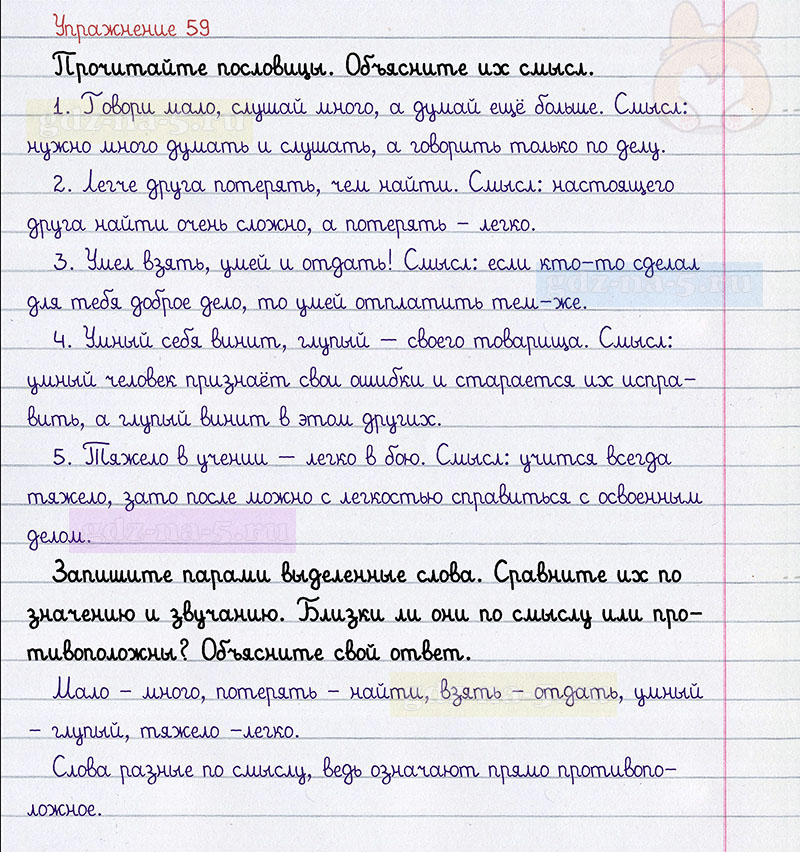 Упражнение 59
Прочитайте пословицы. Объясните их смысл.
1. Говори мало, слушай много, а думай ещё больше. Смысл:
нужно много думать и слушать, а говорить только по делу.
2. Легче друга потерять, чем найти. Смысл: настоящего
друга найти очень сложно, а потерять – легко.
3. Умел взять, умей и отдать! Смысл: если кто-то сделал
для тебя доброе дело, то умей отплатить тем-же.
4. Умный себя винит, глупый – своего товарища. Смысл:
умный человек признаёт свои ошибки и старается их испра-
вить, а глупый винит в этом других.
5. Тяжело в учении – легко в бою. Смысл: учится всегда
тяжело, зато после можно с легкостью справиться с освоенным
делом.
Запишите парами выделенные слова. Сравните их по
значению и звучанию. Близки ли они по смыслу или про-
тивоположны? Объясните свой ответ.
Мало – много, потерять – найти, взять – отдать, умный
– глупый, тяжело –легко.
Слова разные по смыслу, ведь означают прямо противопо-
ложное.
gdz-na-5.ru
gdz-na-5.ru
gdz-na-5.ru
gdz-na-5.ru